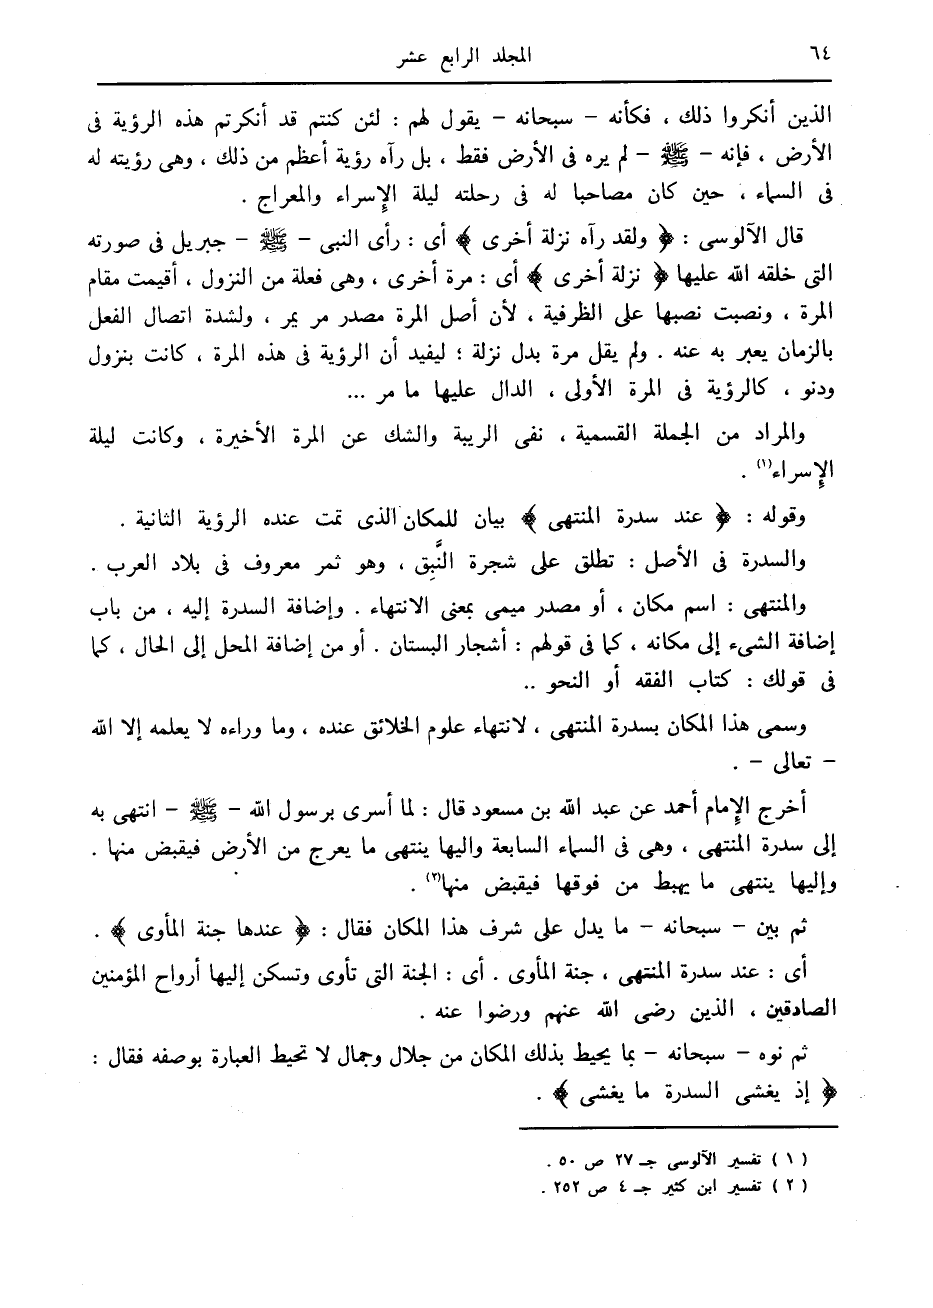 ٦٤ المجلد الرابع عشر
الذين أنكروا ذلك ، فكأنه – سبحانه – يقول لهم : لئن كنتم قد أنكرتم هذه الرؤية فى
الأرض ، فإنه – ﷺ – لم يره فى الأرض فقط ، بل رآه رؤية أعظم من ذلك ، وهى رؤيته له
فى السماء ، حين كان مصاحبا له فى رحلته ليلة الإسراء والمعراج .
قال الآلوسى : ﴿ ولقد رآه نزلة أخرى ﴾ أى : رأى النبى – ﷺ – جبريل فى صورته
التى خلقه الله عليها ﴿ نزلة أخرى ﴾ أى : مرة أخرى ، وهى فعلة من النزول ، أقيمت مقام
المرة ، ونصبت نصبها على الظرفية ، لأن أصل المرة مصدر مر يمر ، ولشدة اتصال الفعل
بالزمان يعبر به عنه . ولم يقل مرة بدل نزلة ؛ ليفيد أن الرؤية فى هذه المرة ، كانت بنزول
ودنو ، كالرؤية فى المرة الأولى ، الدال عليها ما مر ...
والمراد من الجملة القسمية ، نفى الريبة والشك عن المرة الأخيرة ، وكانت ليلة
الإسراء(١) .
وقوله : ﴿ عند سدرة المنتهى ﴾ بيان للمكان الذى تمت عنده الرؤية الثانية .
والسدرة فى الأصل : تطلق على شجرة النَّبِق ، وهو ثمر معروف فى بلاد العرب .
والمنتهى : اسم مكان ، أو مصدر ميمى بمعنى الانتهاء . وإضافة السدرة إليه ، من باب
إضافة الشىء إلى مكانه ، كما فى قولهم : أشجار البستان . أو من إضافة المحل إلى الحال ، كما
فى قولك : كتاب الفقه أو النحو ..
وسمى هذا المكان بسدرة المنتهى ، لانتهاء علوم الخلائق عنده ، وما وراءه لا يعلمه إلا الله
– تعالى – .
أخرج الإمام أحمد عن عبد الله بن مسعود قال : لما أسرى برسول الله – ﷺ – انتهى به
إلى سدرة المنتهى ، وهى فى السماء السابعة واليها ينتهى ما يعرج من الأرض فيقبض منها .
وإليها ينتهى ما يهبط من فوقها فيقبض منها(٢) .
ثم بين – سبحانه – ما يدل على شرف هذا المكان فقال : ﴿ عندها جنة المأوى ﴾ .
أى : عند سدرة المنتهى ، جنة المأوى . أى : الجنة التى تأوى وتسكن إليها أرواح المؤمنين
الصادقين ، الذين رضى الله عنهم ورضوا عنه .
ثم نوه – سبحانه – بما يحيط بذلك المكان من جلال وجمال لا تحيط العبارة بوصفه فقال :
﴿ إذ يغشى السدرة ما يغشى ﴾ .
( ١ ) تفسير الآلوسى جـ ٢٧ ص ٥٠ .
( ٢ ) تفسير ابن كثير جـ ٤ ص ٢٥٢ .